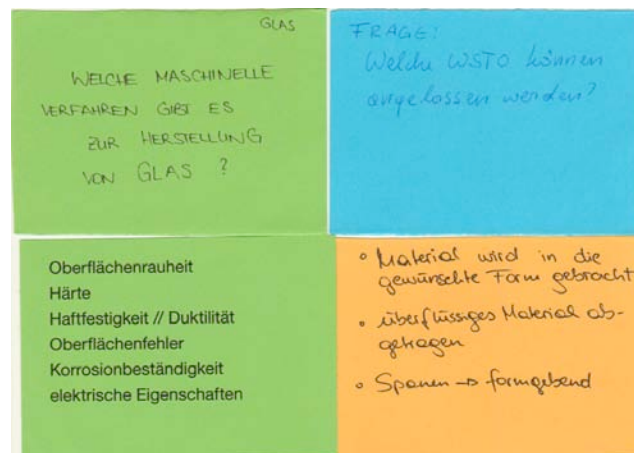 GLAS
WELCHE MASCHINELLE
VERFAHREN GIBT ES
ZUR HERSTELLUNG
VON GLAS ?
FRAGE:
Welche WSTO können
angelassen werden?
Oberflächenrauheit
Härte
Haftfestigkeit // Duktilität
Oberflächenfehler
Korrosionbeständigkeit
elektrische Eigenschaften
• Material wird in die
gewünschte Form gebracht
• überflüssiges Material ab-
getragen
• Spanen → formgebend